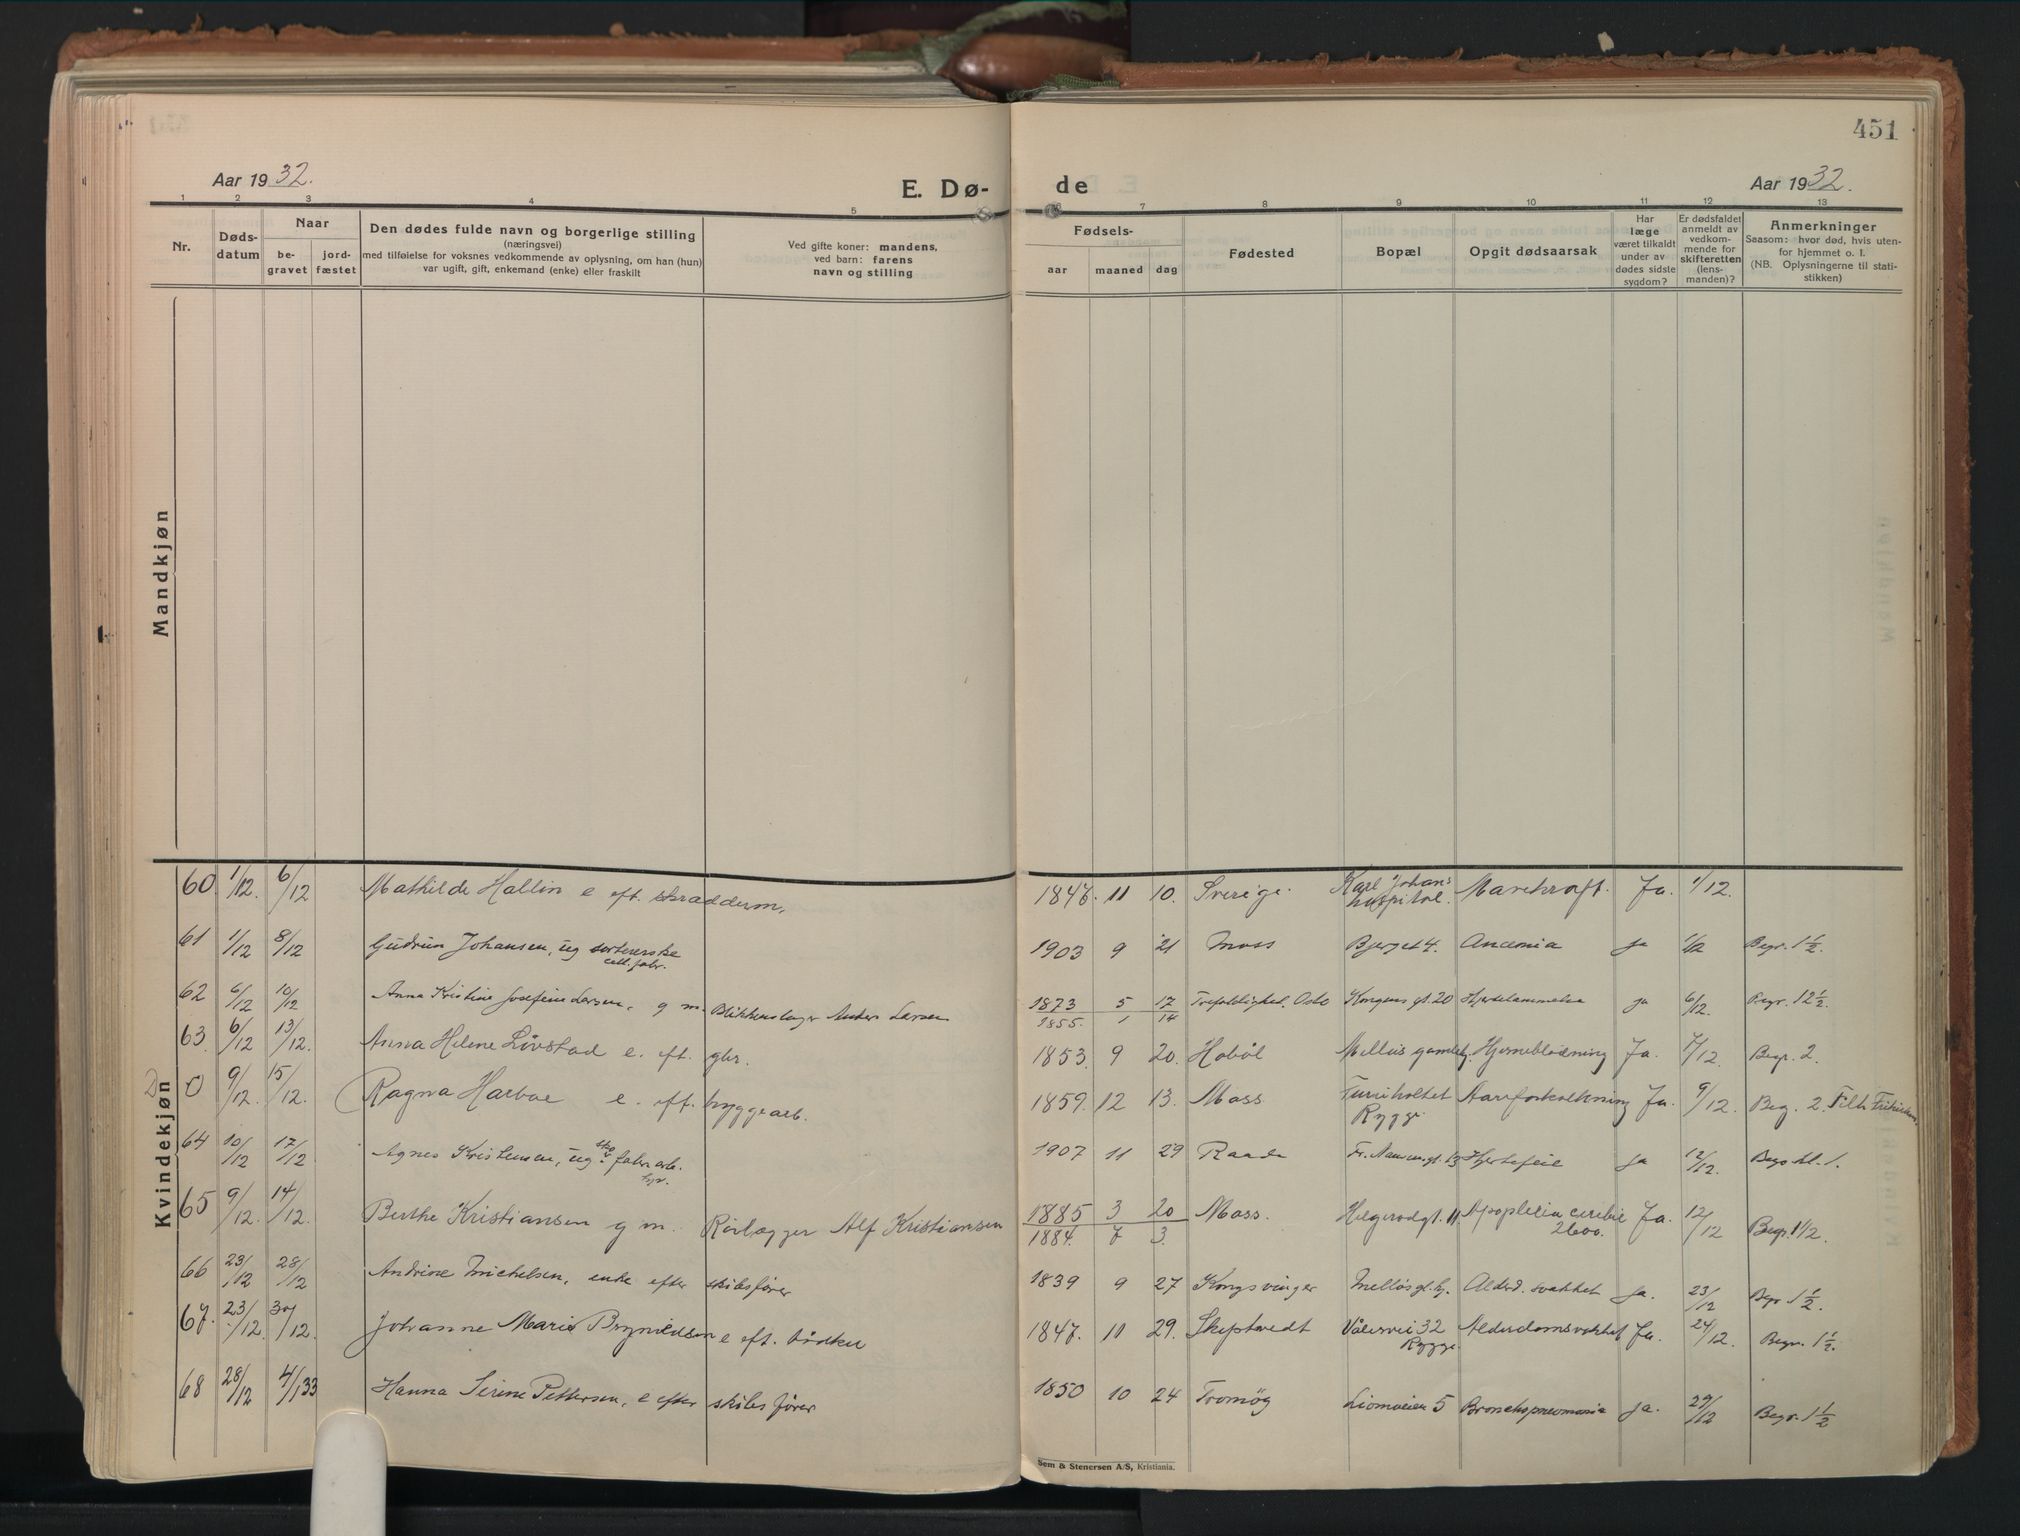 451
Aar 1932.
E. Dø-
de
Aar 1932.
1 2 3 4 5 6 7 8 9 10 11 12 13
Nr.
Døds-
datum
Naar
be-
gravet
jord-
fæstet
Den dødes fulde navn og borgerlige stilling
(næringsvei)
med tilføielse for voksnes vedkommende av oplysning, om han (hun)
var ugift, gift, enkemand (enke) eller fraskilt
Ved gifte koner: mandens,
ved barn: farens
navn og stilling
Fødsels-
aar maaned dag
Fødested
Bopæl
Opgit dødsaarsak
Har
læge
været tilkaldt
under av
dødes sidste
sygdom?
Er dødsfaldet
anmeldt av
vedkom-
mende for
skifteretten
(lens-
manden)?
Anmerkninger
Saasom: hvor død, hvis uten-
for hjemmet o. l.
(NB. Oplysningerne til stati-
stikken)
Mandkjøn
Kvindekjøn
60 1/12. 6/12 Mathilde Hallin e. eft. skrædderm. 1846. 11 10. Sverige. Karl Johans hospital. Marehraft. Ja. 1/12.
61 1/12 8/12 Gudrun Johansen, ug sorterske cell.fabr. 1903 9 21 Moss Bjerget 4. Anæmia ja 1/12 Begr. 1 1/2.
62 6/12 10/12 Anna Kristine Josefine Larsen, g m. Blikkenslager Anders Larsen 1873 5 17 Trefoldighet. Oslo Kongens gt. 20 ja 6/12. Begr. 12 1/2.
1855. 1 14
63. 6/12 13/12. Anna Helene Løvstad e. eft. gbr. 1853 9 20. Hobøl Melløs gamlehj. Hjerneblødning Ja. 7/12. Begr. 2.
0 9/12. 15/12. Ragna Harboe e. eft. byggearb. 1859. 12 13. Moss Furuholtet Rygge Aareforkalkning Ja. 9/12. Beg. 2.
64 10/12 17/12. Agnes Kristensen, ug sko fabr. arb. 1907 11 29 Raade Fr. Nansens gt. 13 Hjertefeil ja 12/12. Begr kl. 1.
65 9/12. 14/12. Berthe Kristiansen g m. Rørlægger Alf Kristiansen 1885 3 20 Moss. Helgerødgt. 11 Apoplexia cerebri Ja. 12/12 Begr. 1 1/2.
1884. 7 3.
66 23/12 28/12 Andrine Michelsen, enke efter skibsfører 1839 9 27 Kongsvinger Melløs gl. hj. Alderd. svakhet Ja. 23/12 Begr 1 1/2.
67. 23/12. 30/12. Johanne Marie Brynildsen e eft. bødker 1847. 11 29. Skiptvedt Vålerveien 32 Rygge. Alderdomsvakhet Ja. 24/12. Begr. 1 1/2.
68 28/12 4/1 33 Hanna Serine Pettersen, e efter skibsfører 1850 10 24 Tromøy 5 Bronchopneumonia ja. 29/12 Begr. 1 1/2
Sem & Stenersen A/S, Kristiania.